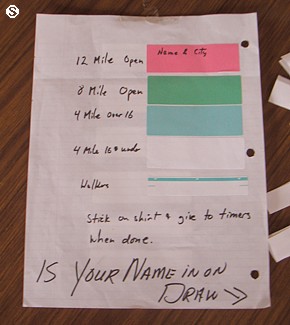 S
12 Mile Open
Name & City
8 Mile Open
4 Mile over 16
4 Mile 16 & under
Walkers
Stick on shirt & give to timers
when done.
IS YOUR NAME IN ON
DRAW